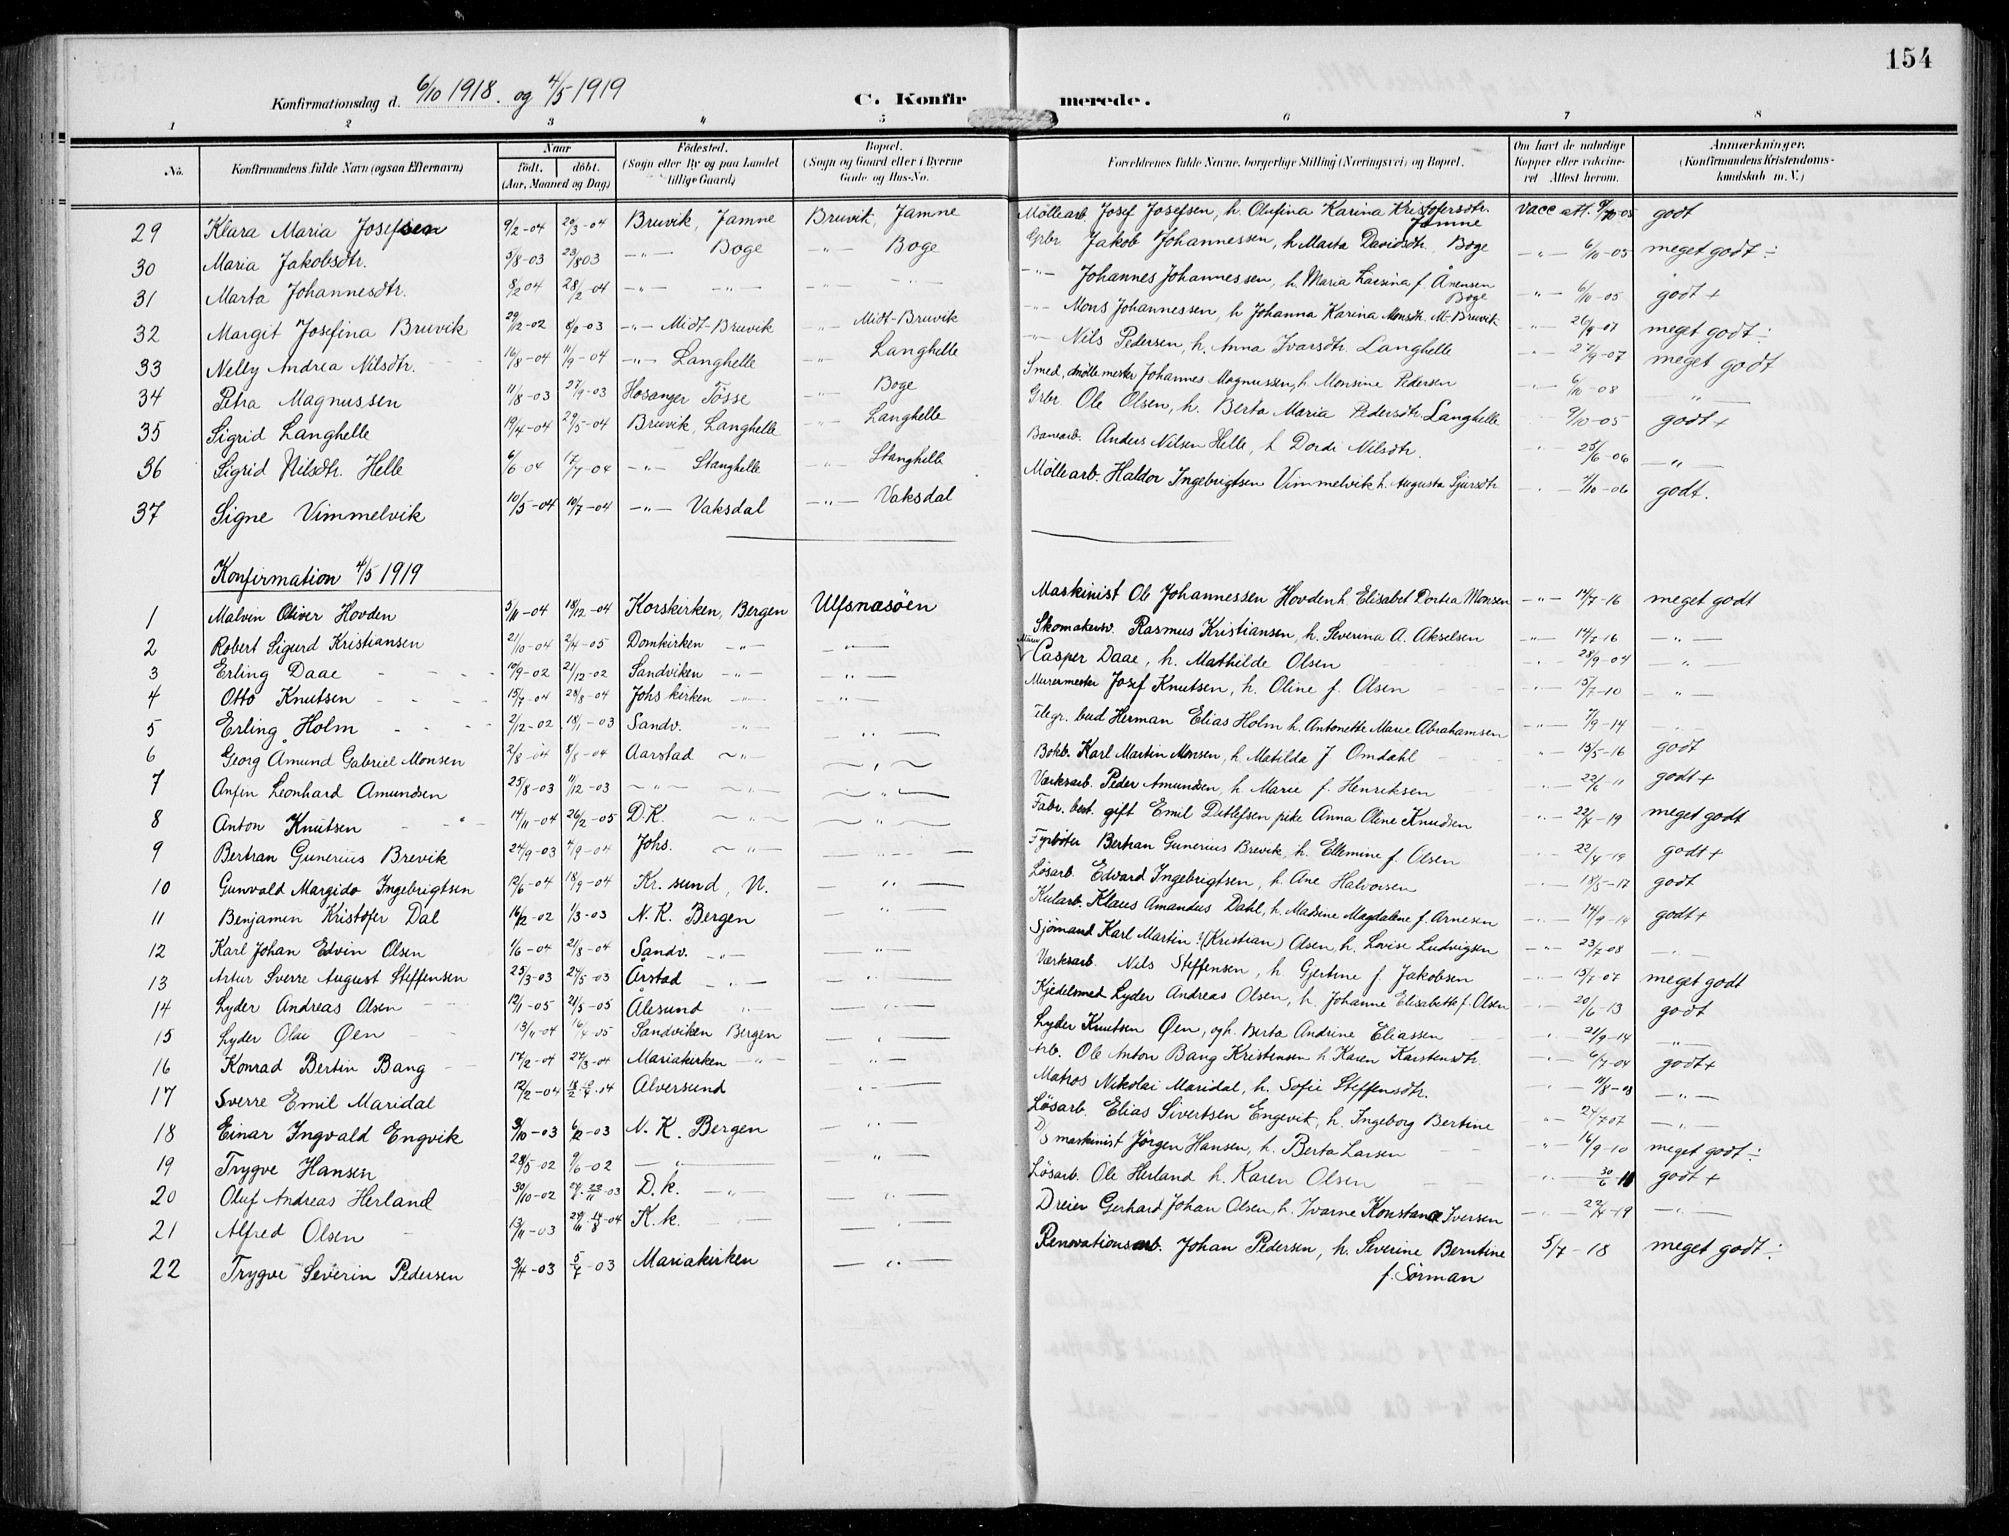 154
Konfirmationsdag d. 6/10 1918. og 4/5 1919
C. Konfirmerede.
1 2 3 4 5 6 7 8
No. Konfirmandens fulde Navn (ogsaa Efternavn) Naar födt. döbt. (Aar, Maaned og Dag) Födested. (Sogn eller By og paa Landet tillige Gaard) Bopæl. (Sogn og Gaard eller i Byerne Gade og Hus-No. Forældrenes fulde Navne, borgerlige Stilling (Næringsvei) og Bopæl. Om havt de naturlige Kopper eller vakcineret Attest herom. Anmærkninger. (Konfirmandens Kristendomskundskab m. V.)
29 Klara Maria Josefsen 9/2-04 20/3-04 Bruvik, Jamne Bruvik, Jamne Möllearb. Josef Josefsen, h. Olufina Karina Kristofersdtr. Jamne Vacc att. 9/10-05 godt
30 Maria Jakobsdtr. 5/8-03 23/8 03 -"- Boge -"- Boge Grbr Jakob Johannessen, h Marta Davidsdtr. Boge -"- 6/10-05 meget godt ÷
31 Marta Johannesdtr. 8/2 04 28/2-04 -"- -"- -"- -"- Johannes Johannessen, h. Maria Larsina f. Ånensen Boge -"- 6/10-05 godt +
32 Margit Josefina Bruvik 29/12-02 8/2-03 -"- Midt-Bruvik -"- Midt-Bruvik -"- Mons Johannessen, h Johanna Karina Monsdtr. M-Bruvik -"- 26/9-07 meget godt ÷
33 Nelly Andrea Nilsdtr. 16/8-04 11/9-04 -"- Langhelle -"- Langhelle -"- Nils Pedersen, h. Anna Ivarsdtr. Langhelle -"- 27/9-07 meget godt
34 Petra Magnussen 11/8-03 27/9-03 Hosanger Tösse -"- Boge Smed, möllemester Johannes Magnussen, h. Monsine Pedersen -"- 6/10-08 -"-
35 Sigrid Langhelle 19/4-04 29/5-04 Bruvik, Langhelle -"- Langhelle Grbr Ole Olsen, h. Berta Maria Pedersdtr. Langhelle 9/10-05 godt +
36 Sigrid Nilsdtr. Helle 6/6 04 17/7-04 -"- Stanghelle -"- Stanghelle Banearb. Anders Nilsen Helle, h Dordi Nilsdtr. -"- 25/6-06 -"-
37 Signe Vimmelvik 10/5-04 10/7-04 -"- Vaksdal -"- Vaksdal Möllearb. Haldor Ingebrigtsen Vimmelvik h. Augusta Sjursdtr -"- /10-06 godt.
Konfirmation 4/5 1919
1 Malvin Oliver Hovden 5/11-04 18/12-04 Korskirken, Bergen Ulfsnæsöen Maskinist Ole Johannessen Hovden h. Elisabet Dortea Monsen -"- 14/7-16 meget godt
2 Robert Sigurd Kristiansen 21/10-04 2/4-05 Domkirken -"- -"- Skomakersv. Rasmus Kristiansen, h. Severina A. Akselsen -"- 14/7-16 -"-
3 Erling Daae 10/9-02 21/12-02 Sandviken -"- -"- Murer Casper Daae, h. Mathilde Olsen -"- 28/9-04 -"-
4 Otto Knutsen 15/7-04 28/8-04 Johs kirken -"- -"- Murermester Josef Knutsen, h. Oline f. Olsen -"- 15/7-10 -"-
5 Erling Holm 2/12-02 18/1-03 Sandv. -"- -"- Telegr. bud Herman Elias Holm h. Antonette Marie Abrahamsen -"- 7/9-14 -"-
6 Georg Amund Gabriel Monsen 2/8-04 8/8-04 Aarstad -"- -"- Bokb. Karl Martin Monsen, h Matilda J Omdahl -"- 13/5-16 godt
7 Anfin Leonhard Amundsen 25/8-03 11/12-03 -"- -"- -"- Værksarb. Peder Amundsen, h Marie f Henriksen -"- 22/6 11 godt +
8 Anton Knutsen 14/11-04 26/2-05 D.K. -"- -"- Fabr. best. gift Emil Detlefsen pike Anna Oline Knudsen -"- 22/4-19 meget godt
9 Bertran Gunerius Brevik 24/9-03 4/9-04 Johs. -"- -"- Fyrböter Bertran Gunerius Brevik, h. Ellemine f. Olsen -"- 22/4-19 godt +
10 Gunvald Margido Ingebrigtsen 12/6-04 18/9-04 Kr. sund, N. -"- Lösarb. Edvard Ingebrigtsen, h. Ane Halvorsen -"- 18/5-17 godt
11 Benjamin Kristofer Dal 16/12-02 1/3-03 N. K. Bergen -"- Kularb. Klaus Amandus Dahl, h. Madsine Magdalene f. Arnesen -"- 14/9-14 godt +
12 Karl Johan Edvin Olsen 1/6-04 21/8-04 Sandv. -"- -"- Sjömand Karl Martin ? (Kristian) Olsen, h. Lovise Ludvigsen -"- 23/7-08 -"-
13 Artur Sverre August Steffensen 25/3-03 27/5-03 Årstad -"- -"- Værksarb. Nils Steffensen, h. Gjertine f. Jakobsen -"- 15/7-07 meget godt
14 Lyder Andreas Olsen 12/1-05 21/5-05 Ålesund -"- -"- Kjedelsmed Lyder Andreas Olsen, h. Johanne Elisabeth f. Olsen -"- 20/6-13 godt
15 Lyder Olai Øen 13/11-04 16/4-05 Sandviken Bergen -"- Lyder Knutsen Øen, og h. Berta Andrine Eliassen -"- 21/9-14 -"-
16 Konrad Bertin Bang 17/2-04 27/3-04 Mariakirken -"- -"- Arb. Ole Anton Bang Kristensen h Karen Karstensdtr. -"- 6/7-04 godt +
17 Sverre Emil Maridal 12/2-04 14 Alversund -"- Matros Nikolai Maridal, h. Sofie Steffensdtr. -"- 11/8-08 -"-
18 Einar Ingvald Engvik 3/10-03 6/12-03 N. K. Bergen -"- Lösarb. Elias Sivertsen Engevik, h. Ingeborg Bertine -"- 24/7 07 -"-
19 Trygve Hansen 28/5-02 9/6-02 -"- -"- D/S maskinist Jörgen Hansen, h. Berta Larsen -"- 16/9-10 meget godt ÷
20 Oluf Andreas Herland 30/10-02 22/11-03 D.k. -"- -"- Lösarb. Ole Herland h. Karen Olsen -"- 30/6 11 godt +
21 Alfred Olsen 13/11-03 14/8-04 K.k. -"- -"- Dreier Gerhard Johan Olsen, h. Ivarne Konstance Iversen -"- 22/4-19 -"-
22 Trygve Severin Pedersen 3/4-03 5/7-03 Mariakirken -"- Renovationsarb. Johan Pedersen, h. Severine Berntine f. Sörman 5/7-18 meget godt ÷